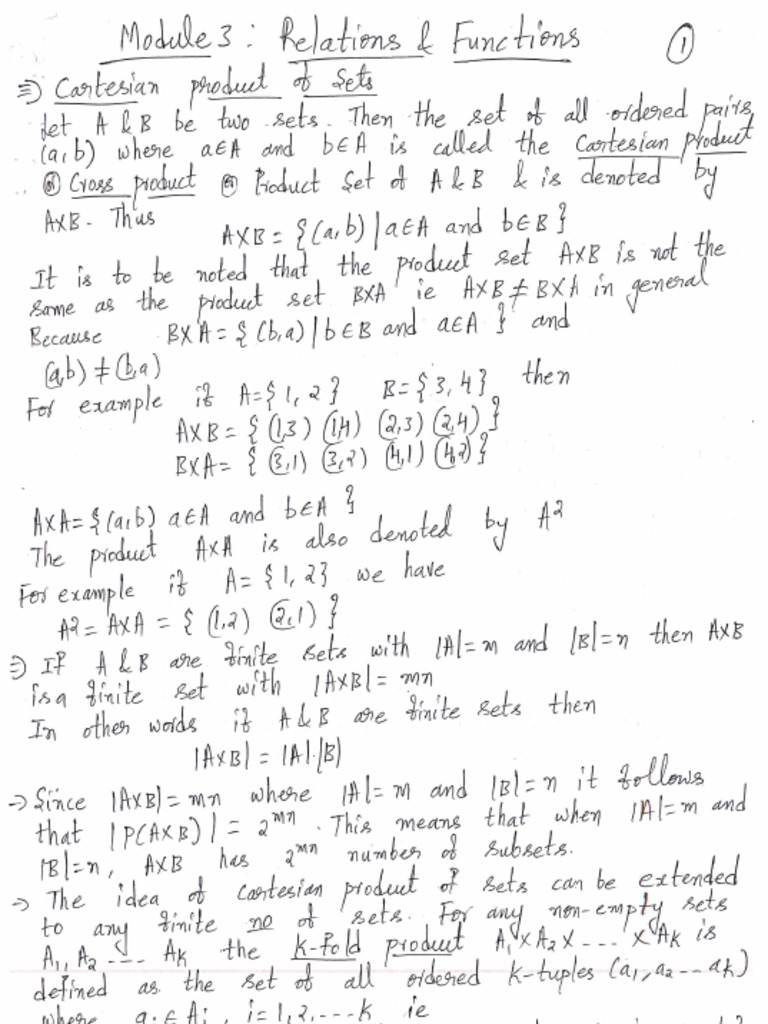 Module 3 : Relations & Functions
1
⇒) Cartesian product of Sets
Let A & B be two sets. Then the set of all ordered pairs,
(a,b) where a∈A and b∈A is called the Cartesian product
or Cross product or Product Set of A & B & is denoted by
AXB. Thus
AXB = {(a,b) | a∈A and b∈B}
It is to be noted that the product set AXB is not the
same as the product set BXA ie AXB ≠ BXA in general
Because BXA = {(b,a) | b∈B and a∈A } and
(a,b) ≠ (b,a)
For example if A={1, 2} B={3, 4} then
AXB = { (1,3) (1,4) (2,3) (2,4) }
BXA = { (3,1) (3,2) (4,1) (4,2) }
AXA = {(a,b) a∈A and b∈A }
The product AXA is also denoted by A²
For example if A = {1, 2} we have
A² = AXA = { (1,2) (2,1) }
⇒) If A & B are finite sets with |A|=m and |B|=n then AXB
is a finite set with |AXB| = mn
In other words if A & B are finite sets then
|AXB| = |A|.|B|
→ Since |AXB| = mn where |A|=m and |B|=n it follows
that |P(AXB)| = 2^mn. This means that when |A|=m and
|B|=n, AXB has 2^mn number of subsets.
→ The idea of Cartesian product of sets can be extended
to any finite no of sets. For any non-empty sets
A₁, A₂ ---- Ak the k-fold product A₁ X A₂ X .... X Ak is
defined as the set of all ordered k-tuples (a₁, a₂ -- ak)
where ai ∈ Ai, i = 1, 2, ---- k ie